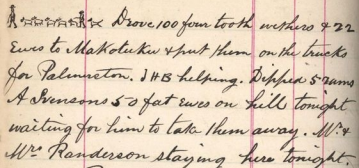 Drove 100 four tooth wethers & 22
Ewes to Makotuku & put them on the trucks
for Palmerston. JHB helping. Dipped 52 rams
A Svensons 50 fat Ewes on hill tonight
waiting for him to take them away. Mr &
Mrs Randerson staying here tonight